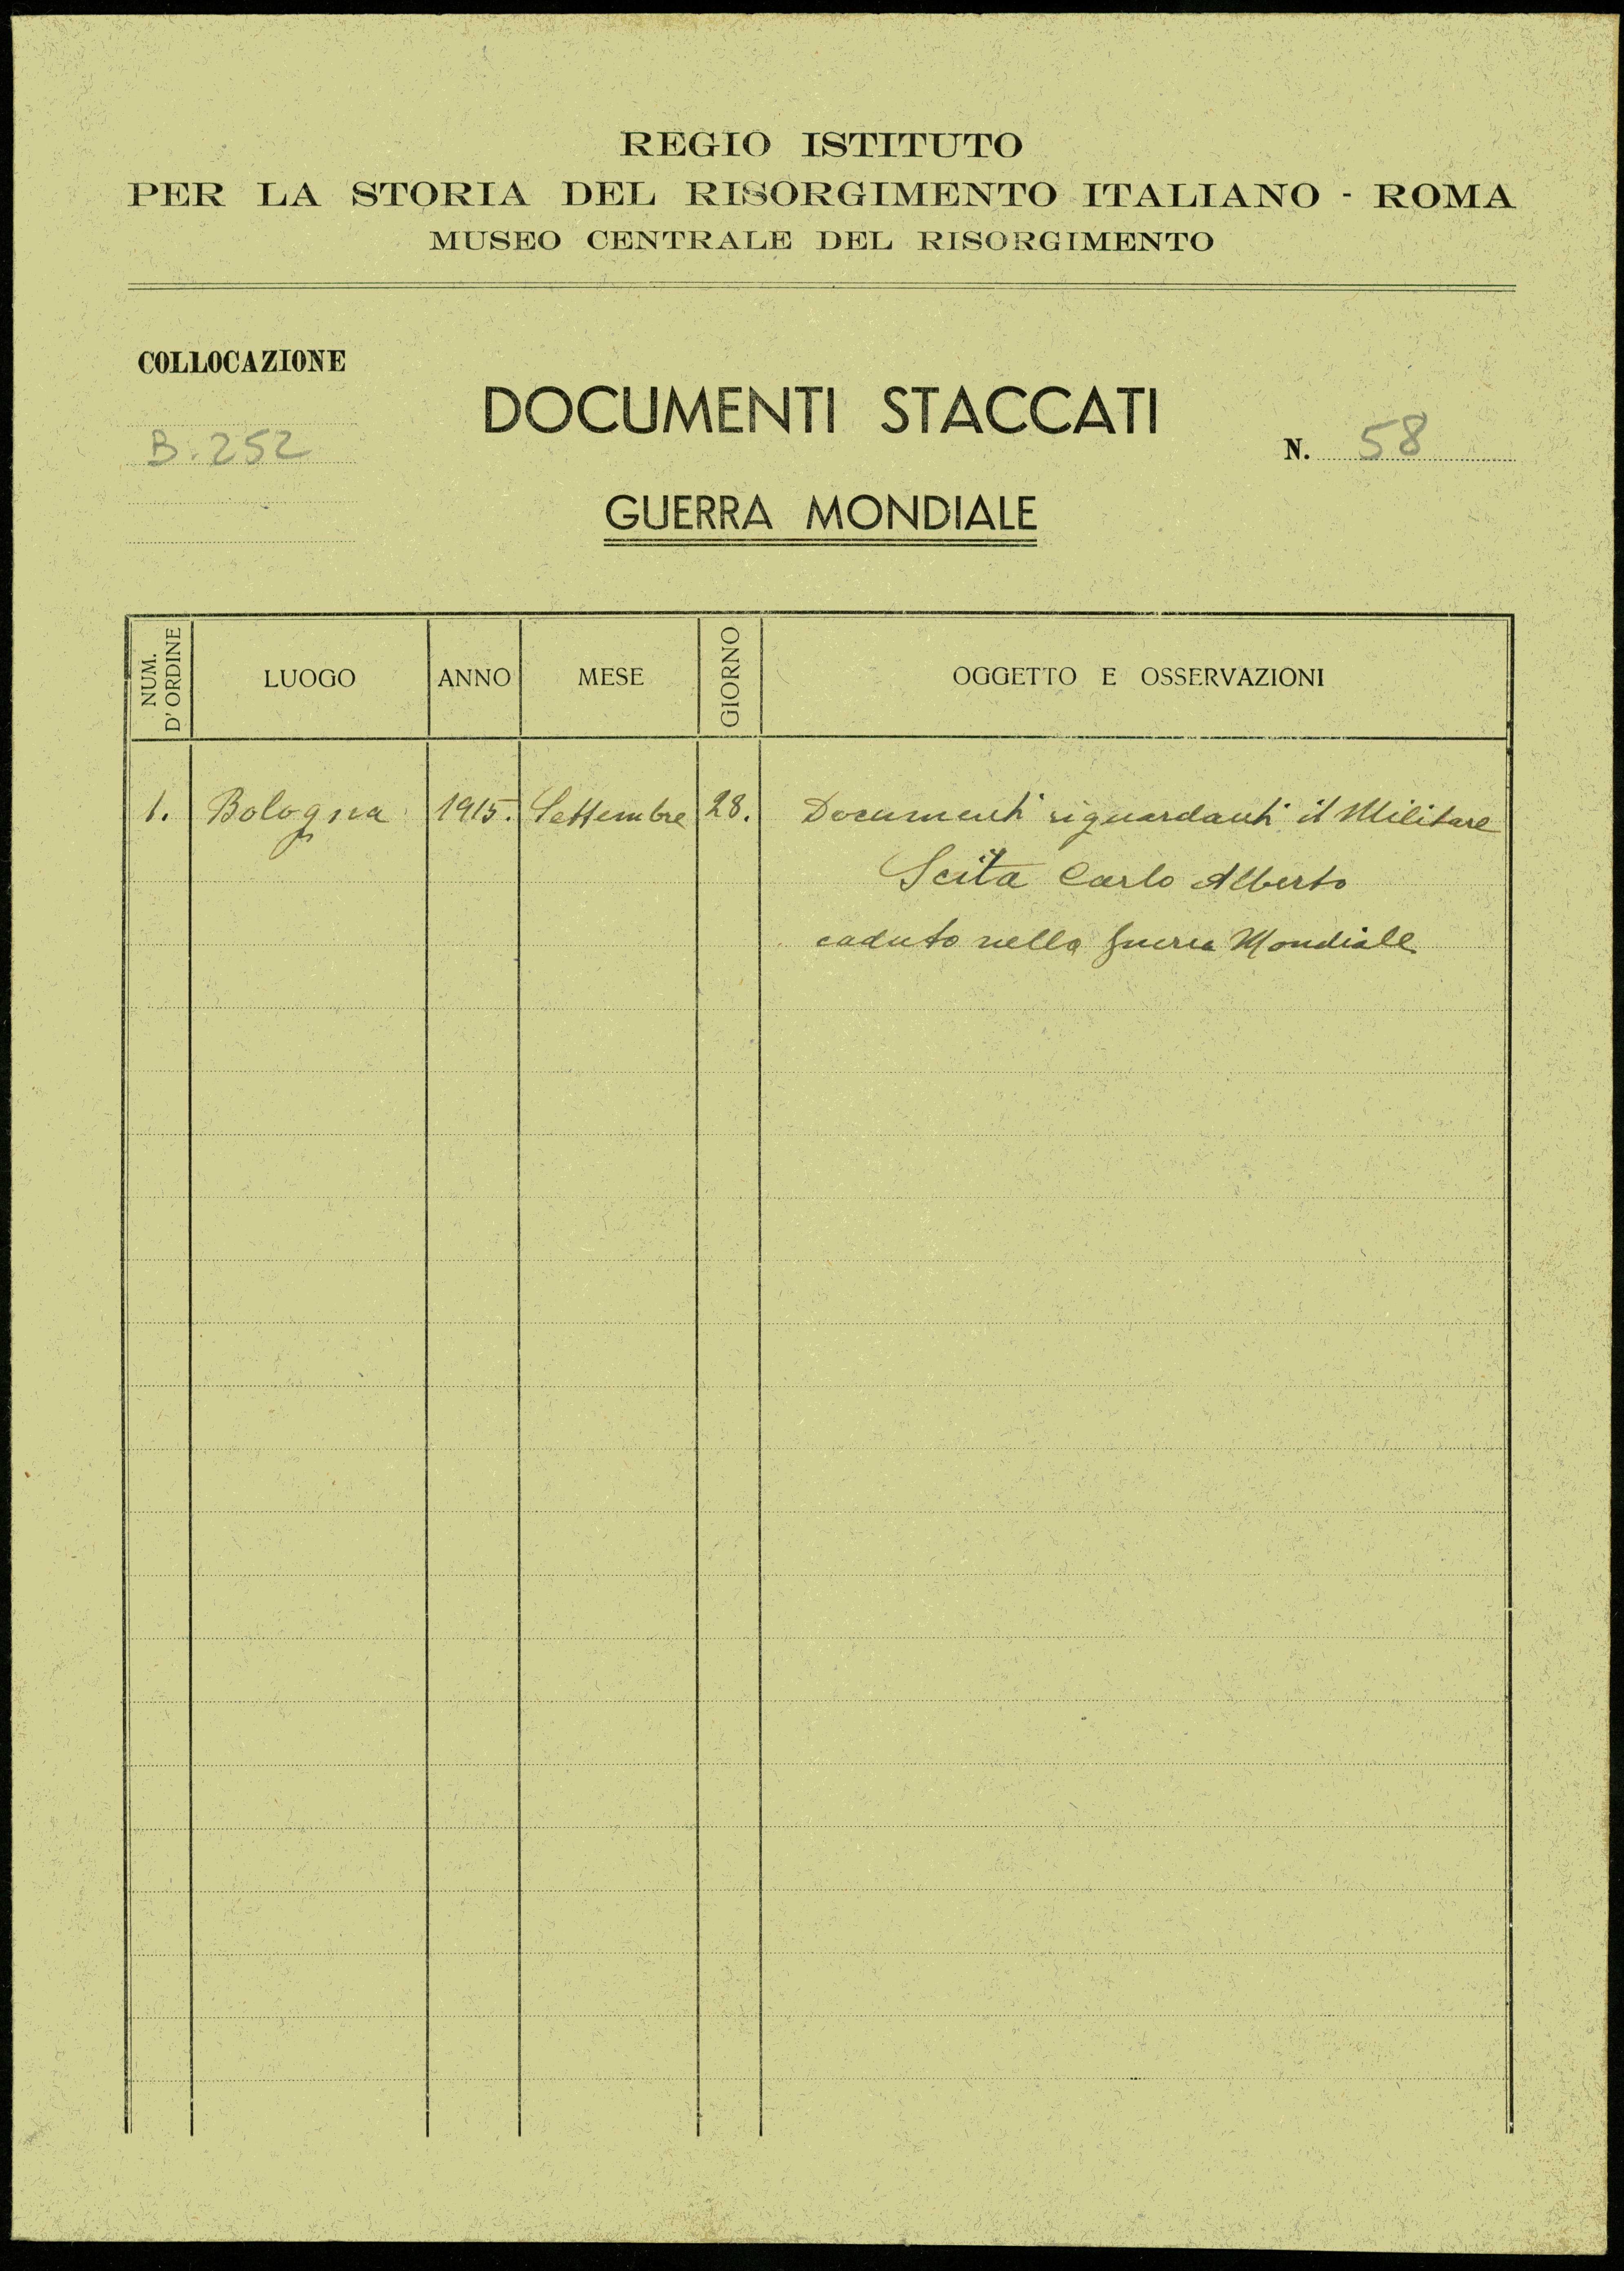 REGIO ISTITUTO
PER LA STORIA DEL RISORGIMENTO ITALIANO - ROMA
MUSEO CENTRALE DEL RISORGIMENTO
COLLOCAZIONE
B. 252
DOCUMENTI STACCATI
N. 58
GUERRA MONDIALE
NUM. D' ORDINE LUOGO ANNO MESE GIORNO OGGETTO E OSSERVAZIONI
1. Bologna 1915. Settembre 28. Documenti riguardanti il Militare
Scita Carlo Alberto
caduto nella guerra Mondiale